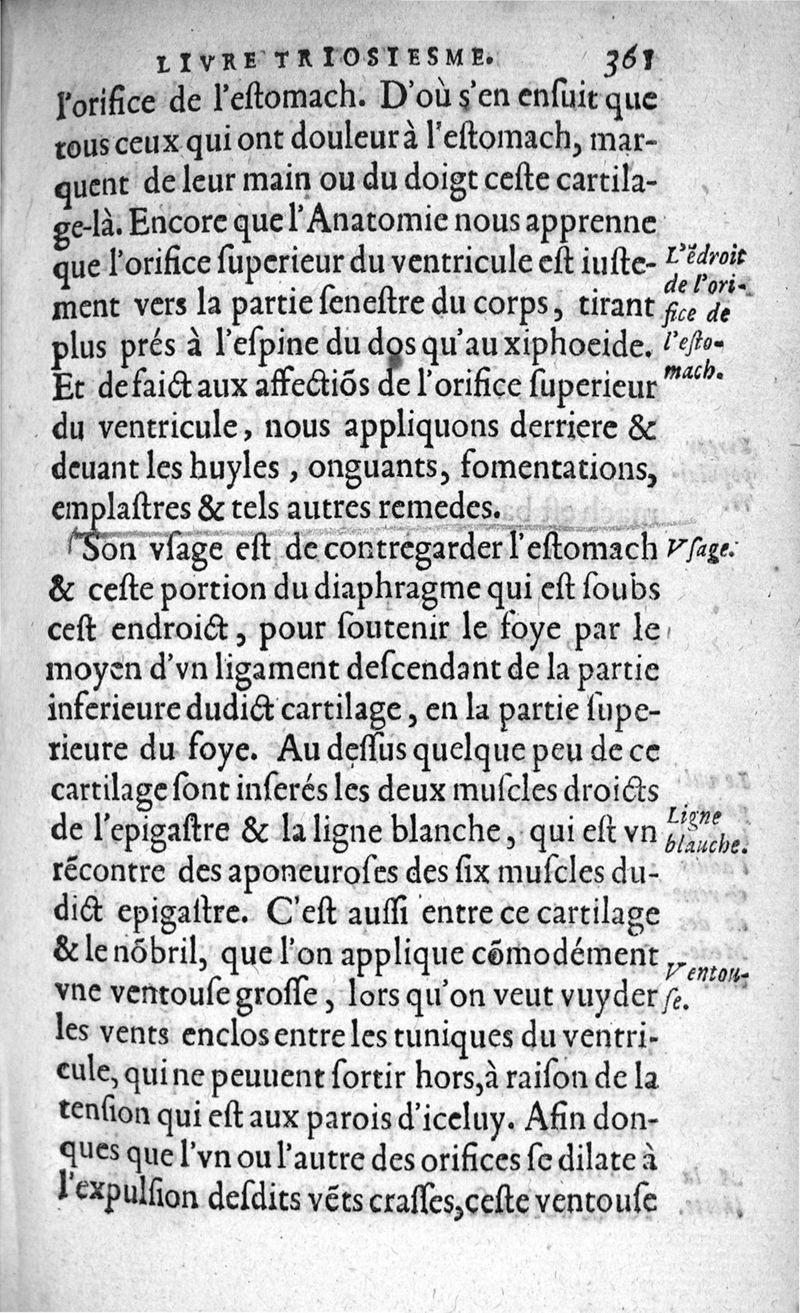 LIVRE TRIOSIESME. 361
l'orifice de l'eſtomach. D'où s'en enſuit que
tous ceux qui ont douleur à l'eſtomach, mar-
quent de leur main ou du doigt ceſte cartila-
ge-là. Encore que l'Anatomie nous apprenne
que l'orifice ſuperieur du ventricule eſt iuſte-
L'ẽdroit
ment vers la partie ſeneſtre du corps, tirant
de l'ori-
fice de
plus prés à l'eſpine du dos qu'au xiphoeide.
l'eſto-
Et de faict aux affectiõs de l'orifice ſuperieur
mach.
du ventricule, nous appliquons derriere &
deuant les huyles, onguants, fomentations,
emplaſtres & tels autres remedes.
Son vſage eſt de contregarder l'eſtomach
Vſage.
& ceſte portion du diaphragme qui eſt ſoubs
ceſt endroict, pour ſoutenir le foye par le
moyen d'vn ligament deſcendant de la partie
inferieure dudict cartilage, en la partie ſupe-
rieure du foye. Au deſſus quelque peu de ce
cartilage ſont inſerés les deux muſcles droicts
de l'epigaſtre & la ligne blanche, qui eſt vn
Ligne
blauche.
rẽcontre des aponeuroſes des ſix muſcles du-
dict epigaſtre. C'eſt auſſi entre ce cartilage
& le nõbril, que l'on applique cõmodément
Ventou-
vne ventouſe groſſe, lors qu'on veut vuyder
ſe.
les vents enclos entre les tuniques du ventri-
cule, qui ne peuuent ſortir hors, à raiſon de la
tenſion qui eſt aux parois d'iceluy. Afin don-
ques que l'vn ou l'autre des orifices ſe dilate à
l'expulſion deſdits vẽts craſſes, ceſte ventouſe